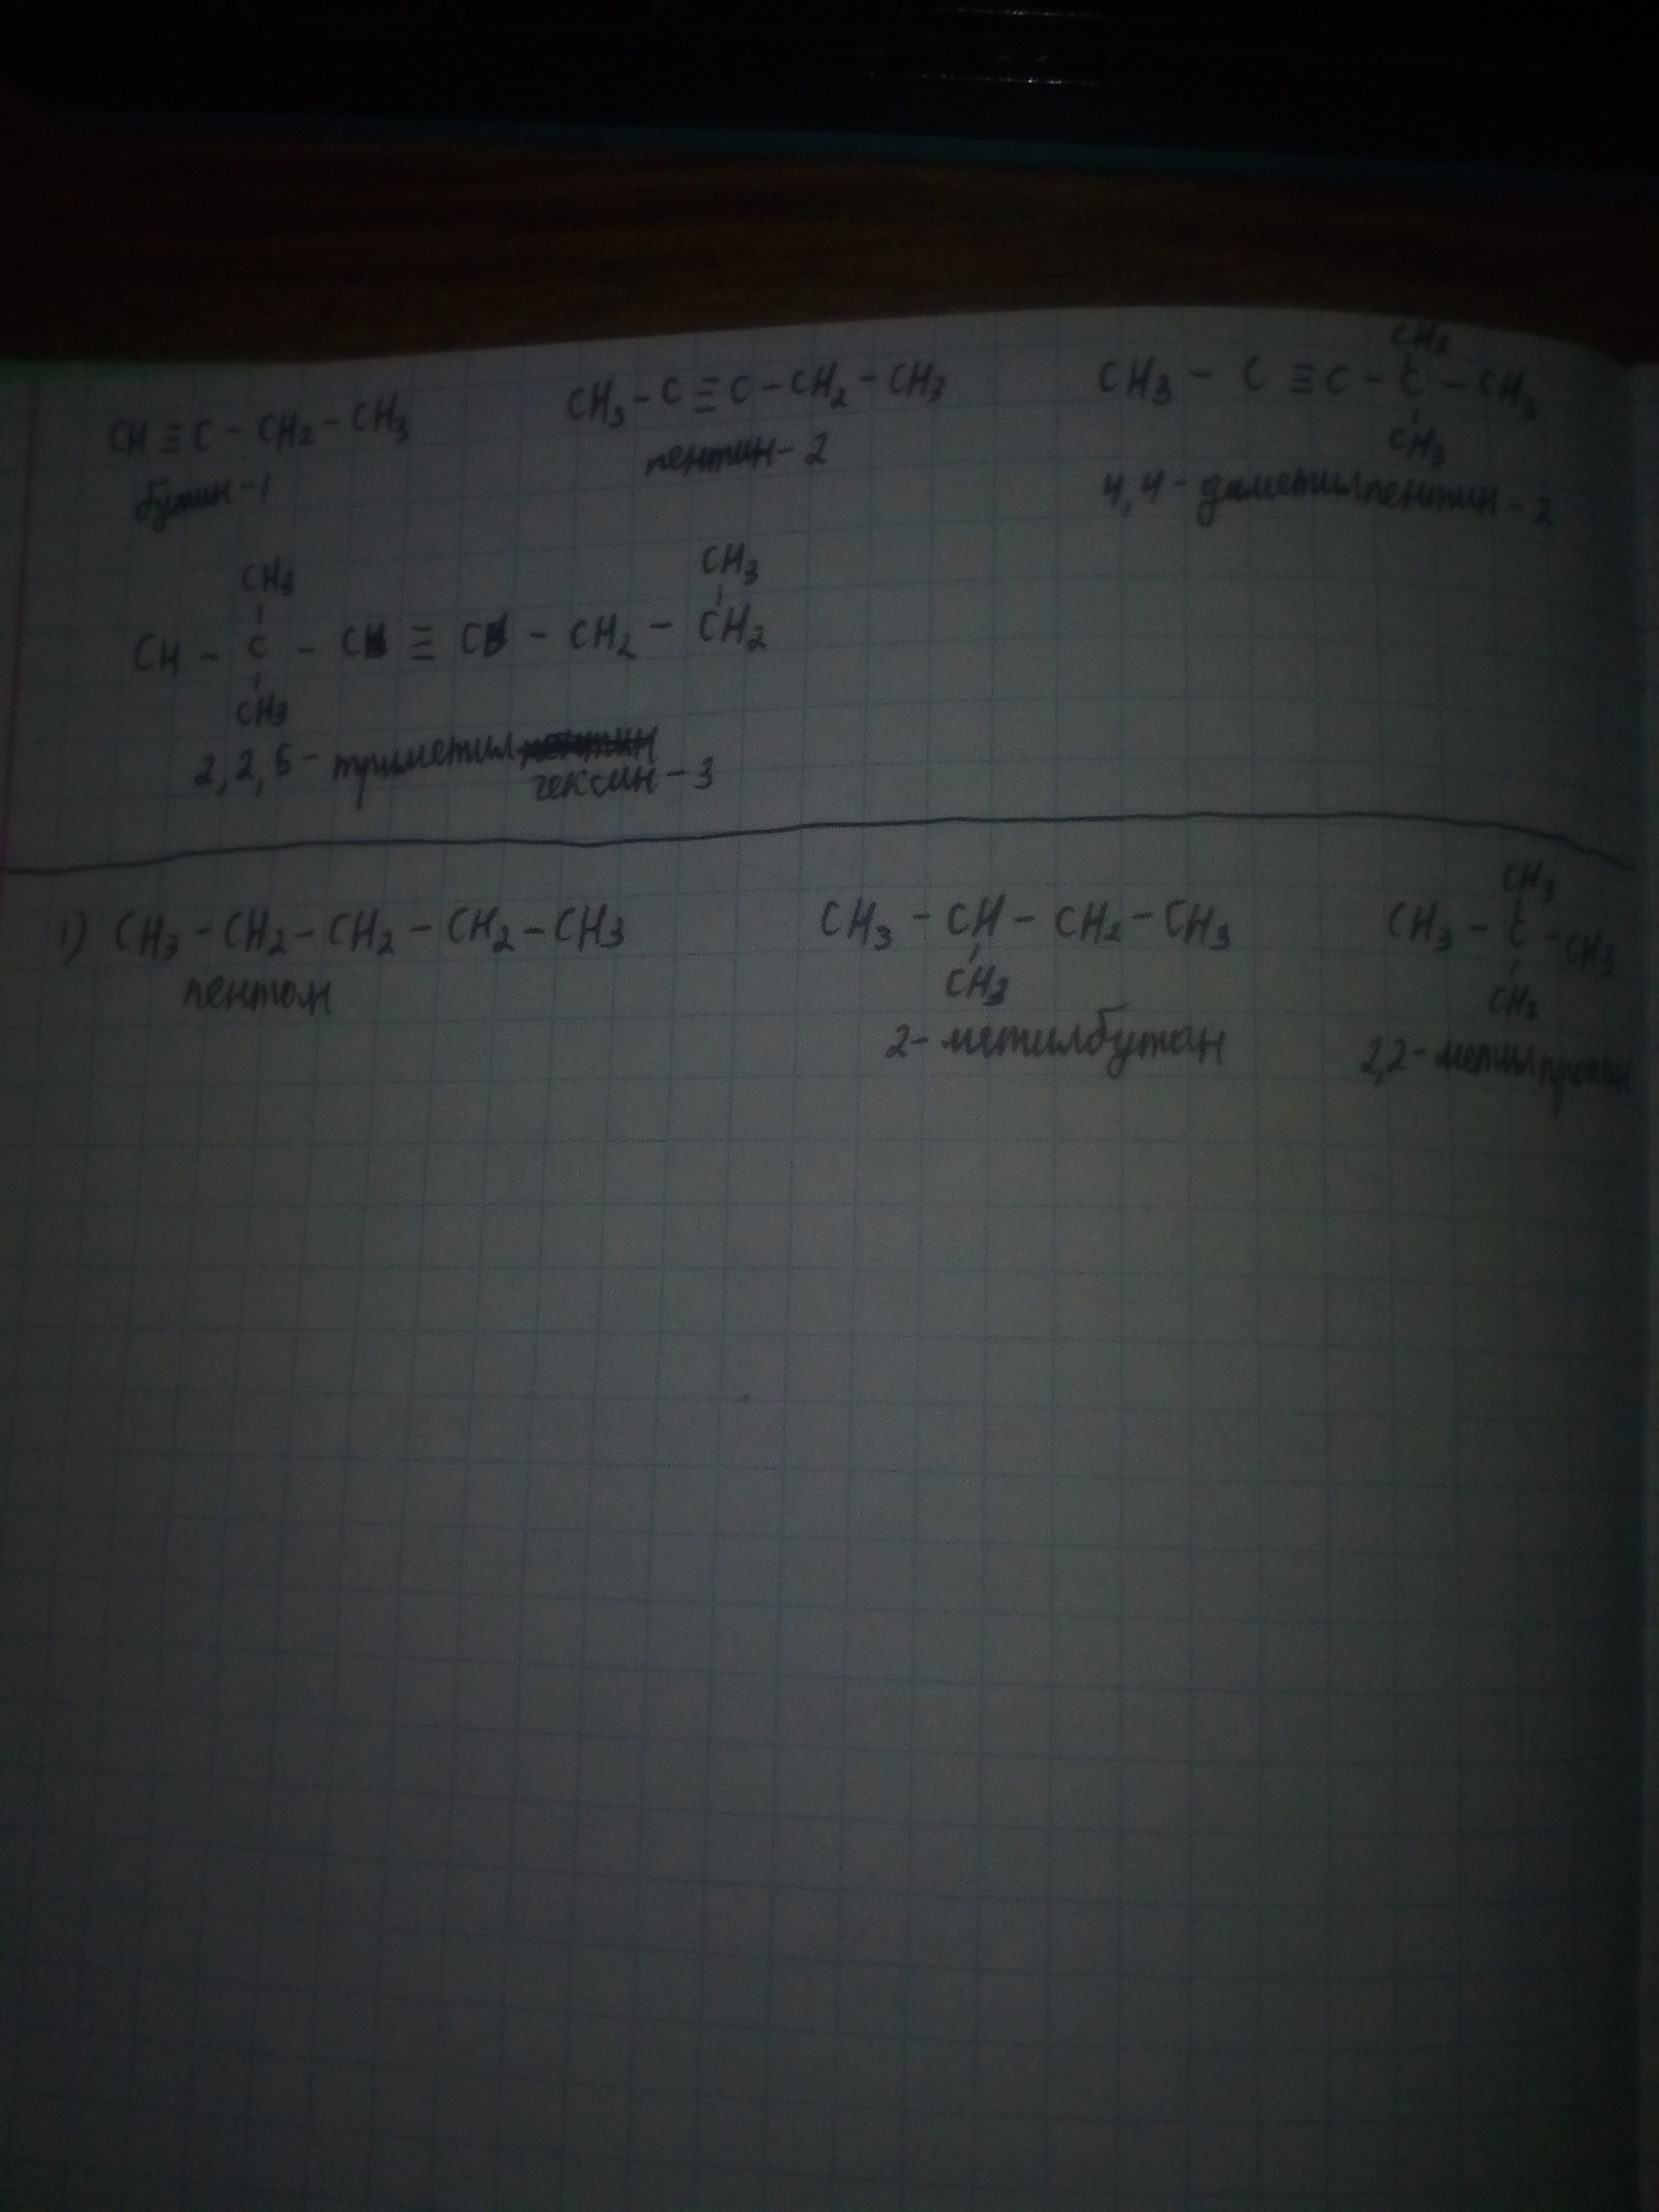 CH≡C-CH₂-CH₃
бутин-1
CH₃-C≡C-CH₂-CH₃
пентин-2
CH₃
CH₃-C≡C-C-CH₃
CH₃
4,4-диметилпентин-2
CH₃ CH₃
CH-C-C≡C-CH₂-CH₂
CH₃
2,2,5-триметил
гексин-3
1) CH₃-CH₂-CH₂-CH₂-CH₃
пентан
CH₃-CH-CH₂-CH₃
CH₃
2-метилбутан
CH₃
CH₃-C-CH₃
CH₃
2,2-метилпропан